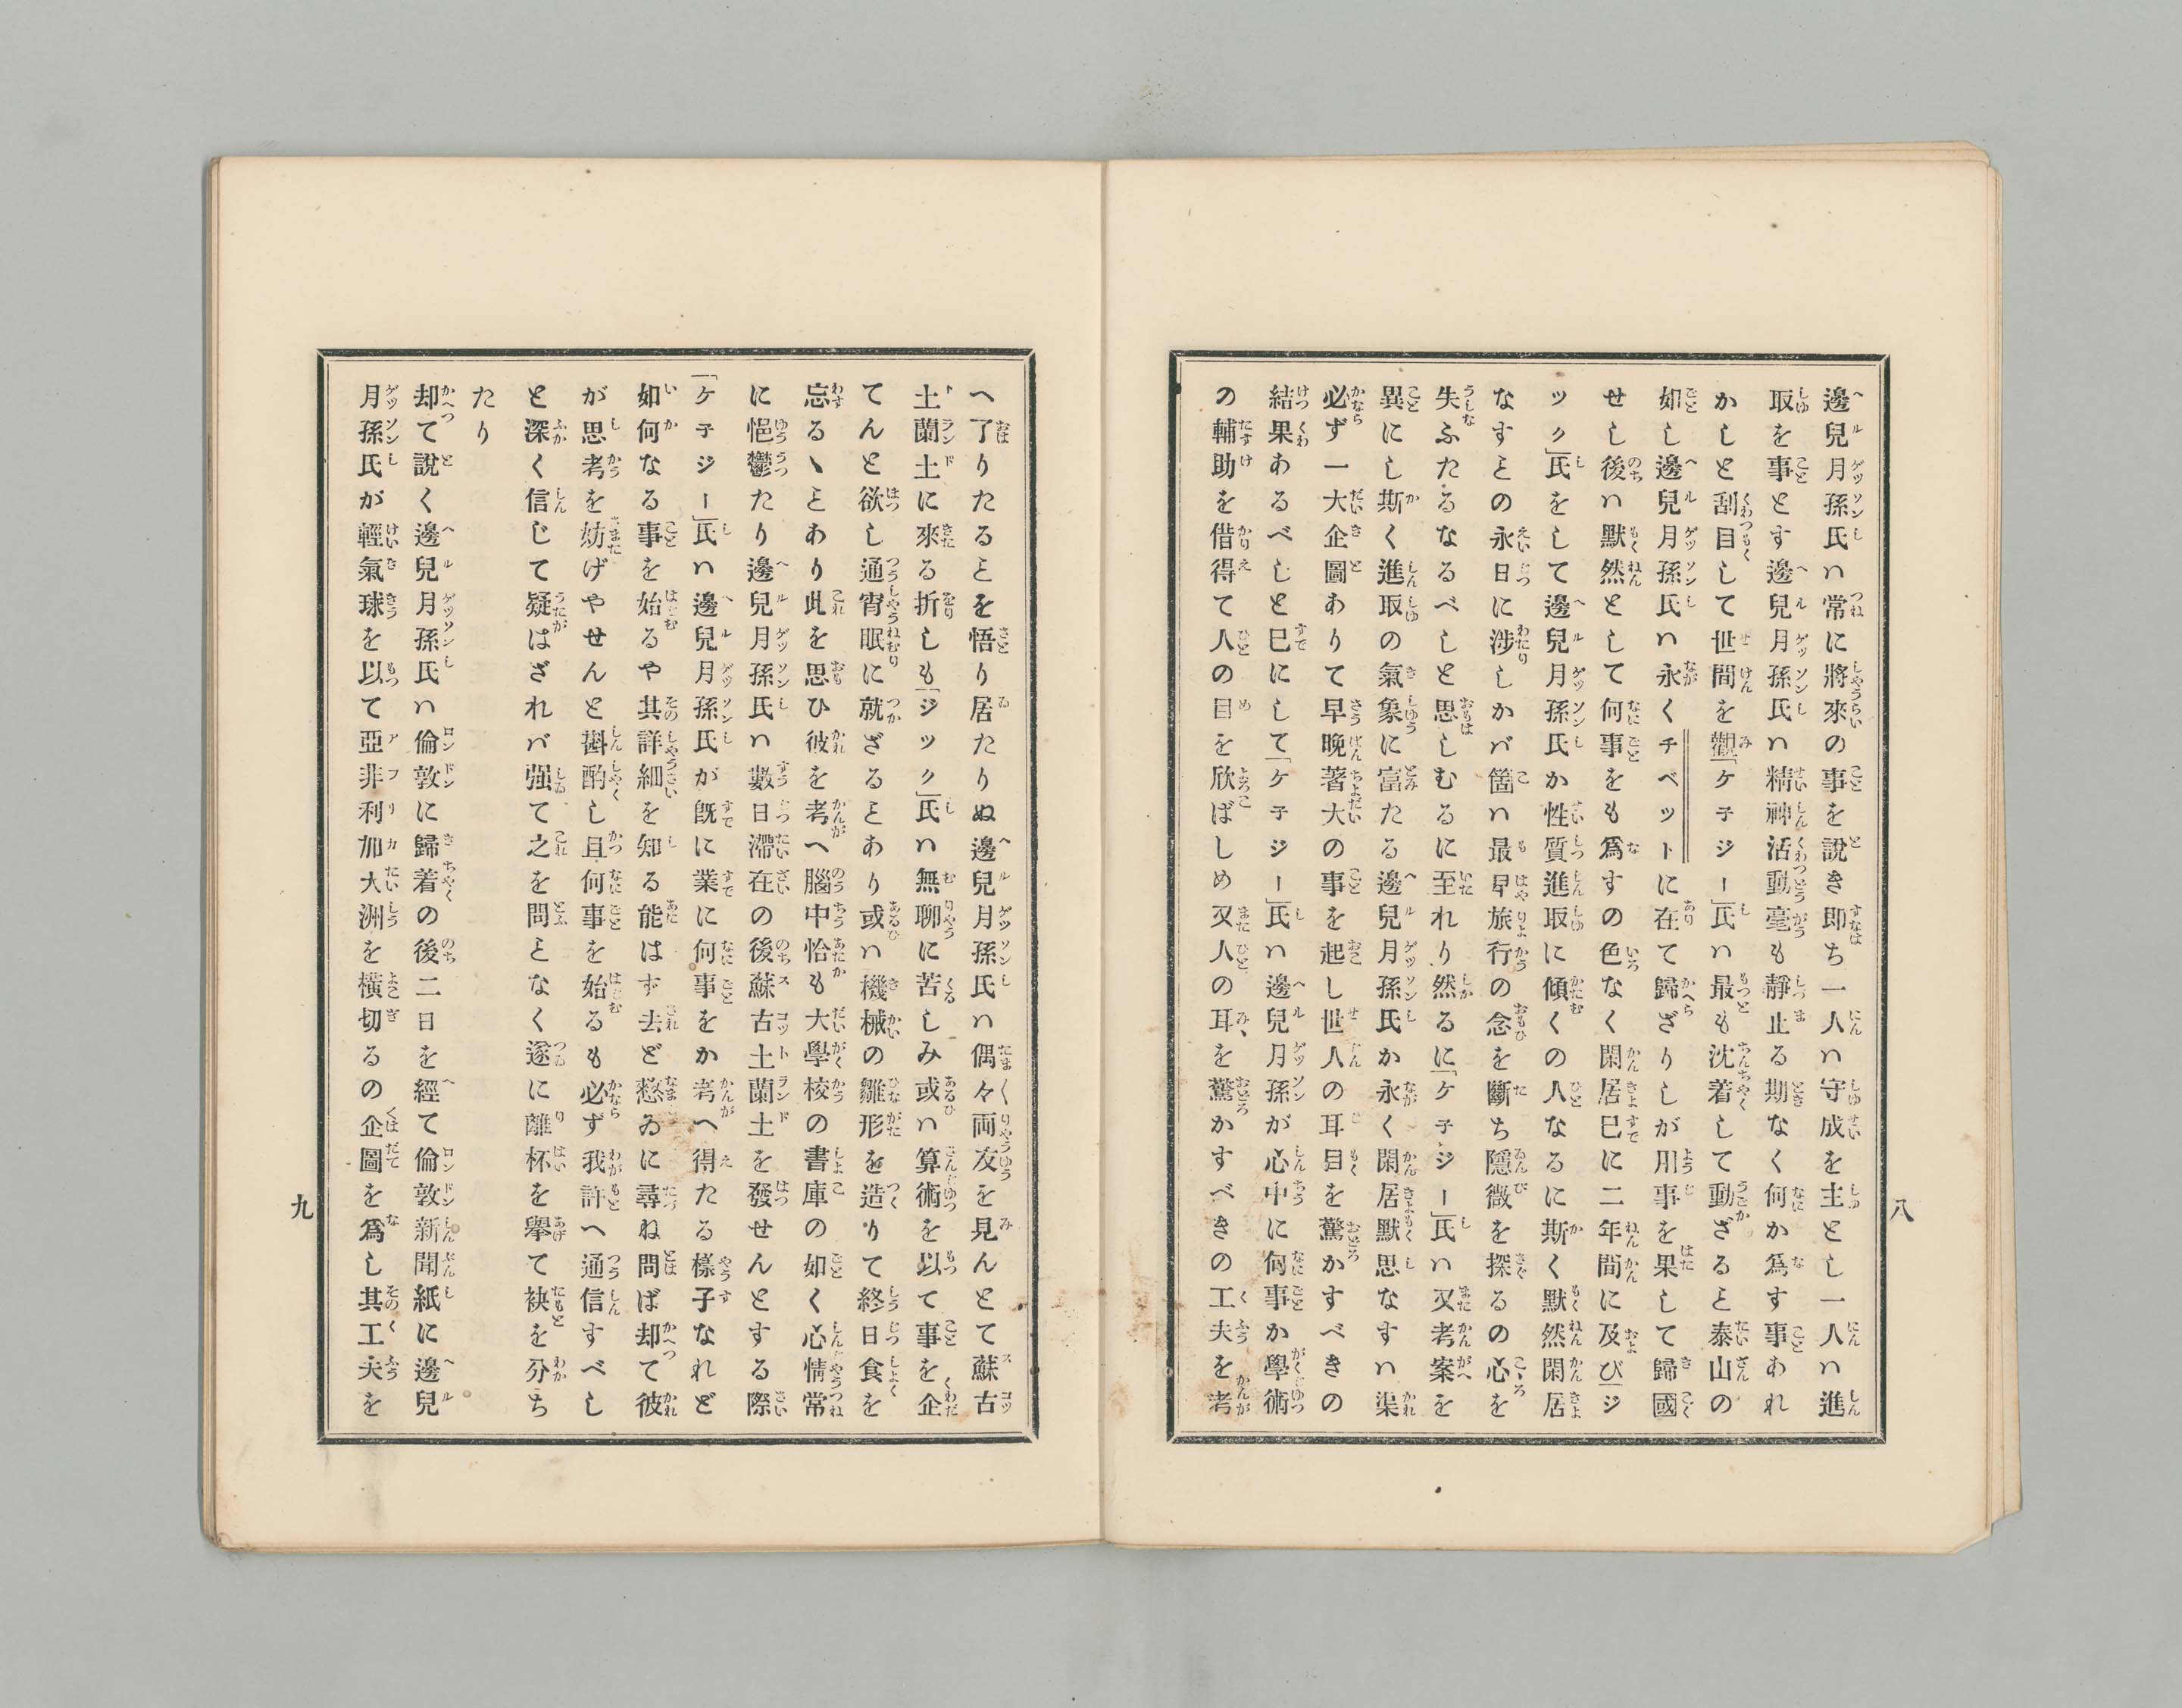 邊兒月孫氏ハ常に將來の事を説き即ち一人ハ守成を主とし一人ハ進
取を事とす邊兒月孫氏ハ精神活動毫も靜止る期なく何か爲す事あれ
かしと刮目して世間を觀「ケ子ジー」氏ハ最も沈着して動ざると泰山の
如し邊兒月孫氏ハ永くチベットに在て歸ざりしが用事を果して歸國
せし後ハ默然として何事をも爲すの色なく閑居已に二年間に及び「ジ
ック」氏をして邊兒月孫氏か性質進取に傾くの人なるに斯く默然閑居
なすとの永日に渉しかバ箇ハ最早旅行の念を斷ち隱微を探るの心を
失ふたるなるべしと思しむるに至れり然るに「ケ子ジー」氏ハ又考案を
異にし斯く進取の氣象に富たる邊兒月孫氏か永く閑居默思なすハ渠
必ず一大企圖ありて早晩著大の事を起し世人の耳目を驚かすべきの
結果あるべしと已にして「ケ子ジー」氏ハ邊兒月孫が心中に何事か學術
の輔助を借得て人の目を欣ばしめ又人の耳を驚かすべきの工夫を考
八
へ了りたるとを悟り居たりぬ邊兒月孫氏ハ偶々両友を見んとて蘇古
土蘭土に來る折しも「ジック」氏ハ無聊に苦しみ或ハ算術を以て事を企
てんと欲し通宵眠に就ざるとあり或ハ機械の雛形を造りて終日食を
忘るゝとあり此を思ひ彼を考へ腦中恰も大學校の書庫の如く心情常
に悒鬱たり邊兒月孫氏ハ數日滯在の後蘇古土蘭土を發せんとする際
「ケ子ジー」氏ハ邊兒月孫氏が既に業に何事をか考へ得たる樣子なれど
如何なる事を始るや其詳細を知る能はず去ど憖ゐに尋ね問ば却て彼
が思考を妨げやせんと斟酌し且何事を始るも必ず我許へ通信すべし
と深く信じて疑はざれバ强て之を問となく遂に離杯を擧て袂を分ち
たり
却て說く邊兒月孫氏ハ倫敦に歸着の後二日を經て倫敦新聞紙に邊兒
月孫氏が輕氣球を以て亞非利加大洲を横切るの企圖を爲し其工夫を
九